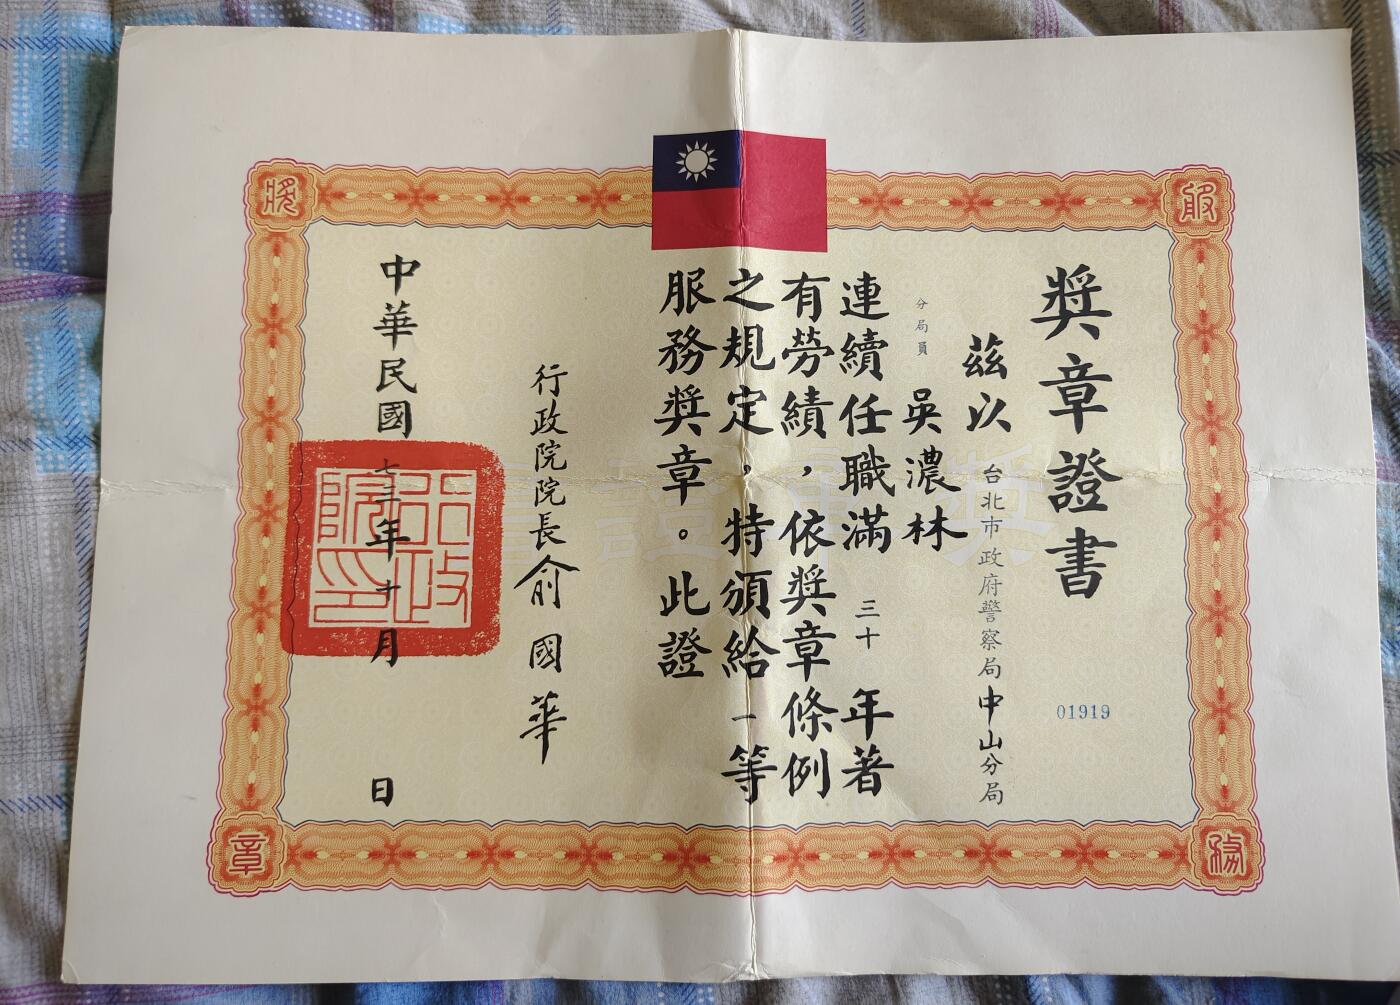 獎章證書
01919
茲以台北市政府警察局中山分局
分局員 吳濃林
連續任職滿三十年著
有勞績，依獎章條例
之規定，特頒給一等
服務獎章。此證
行政院院長俞國華
中華民國七三年十月日
服
務
獎
章
行政院印
獎章證書